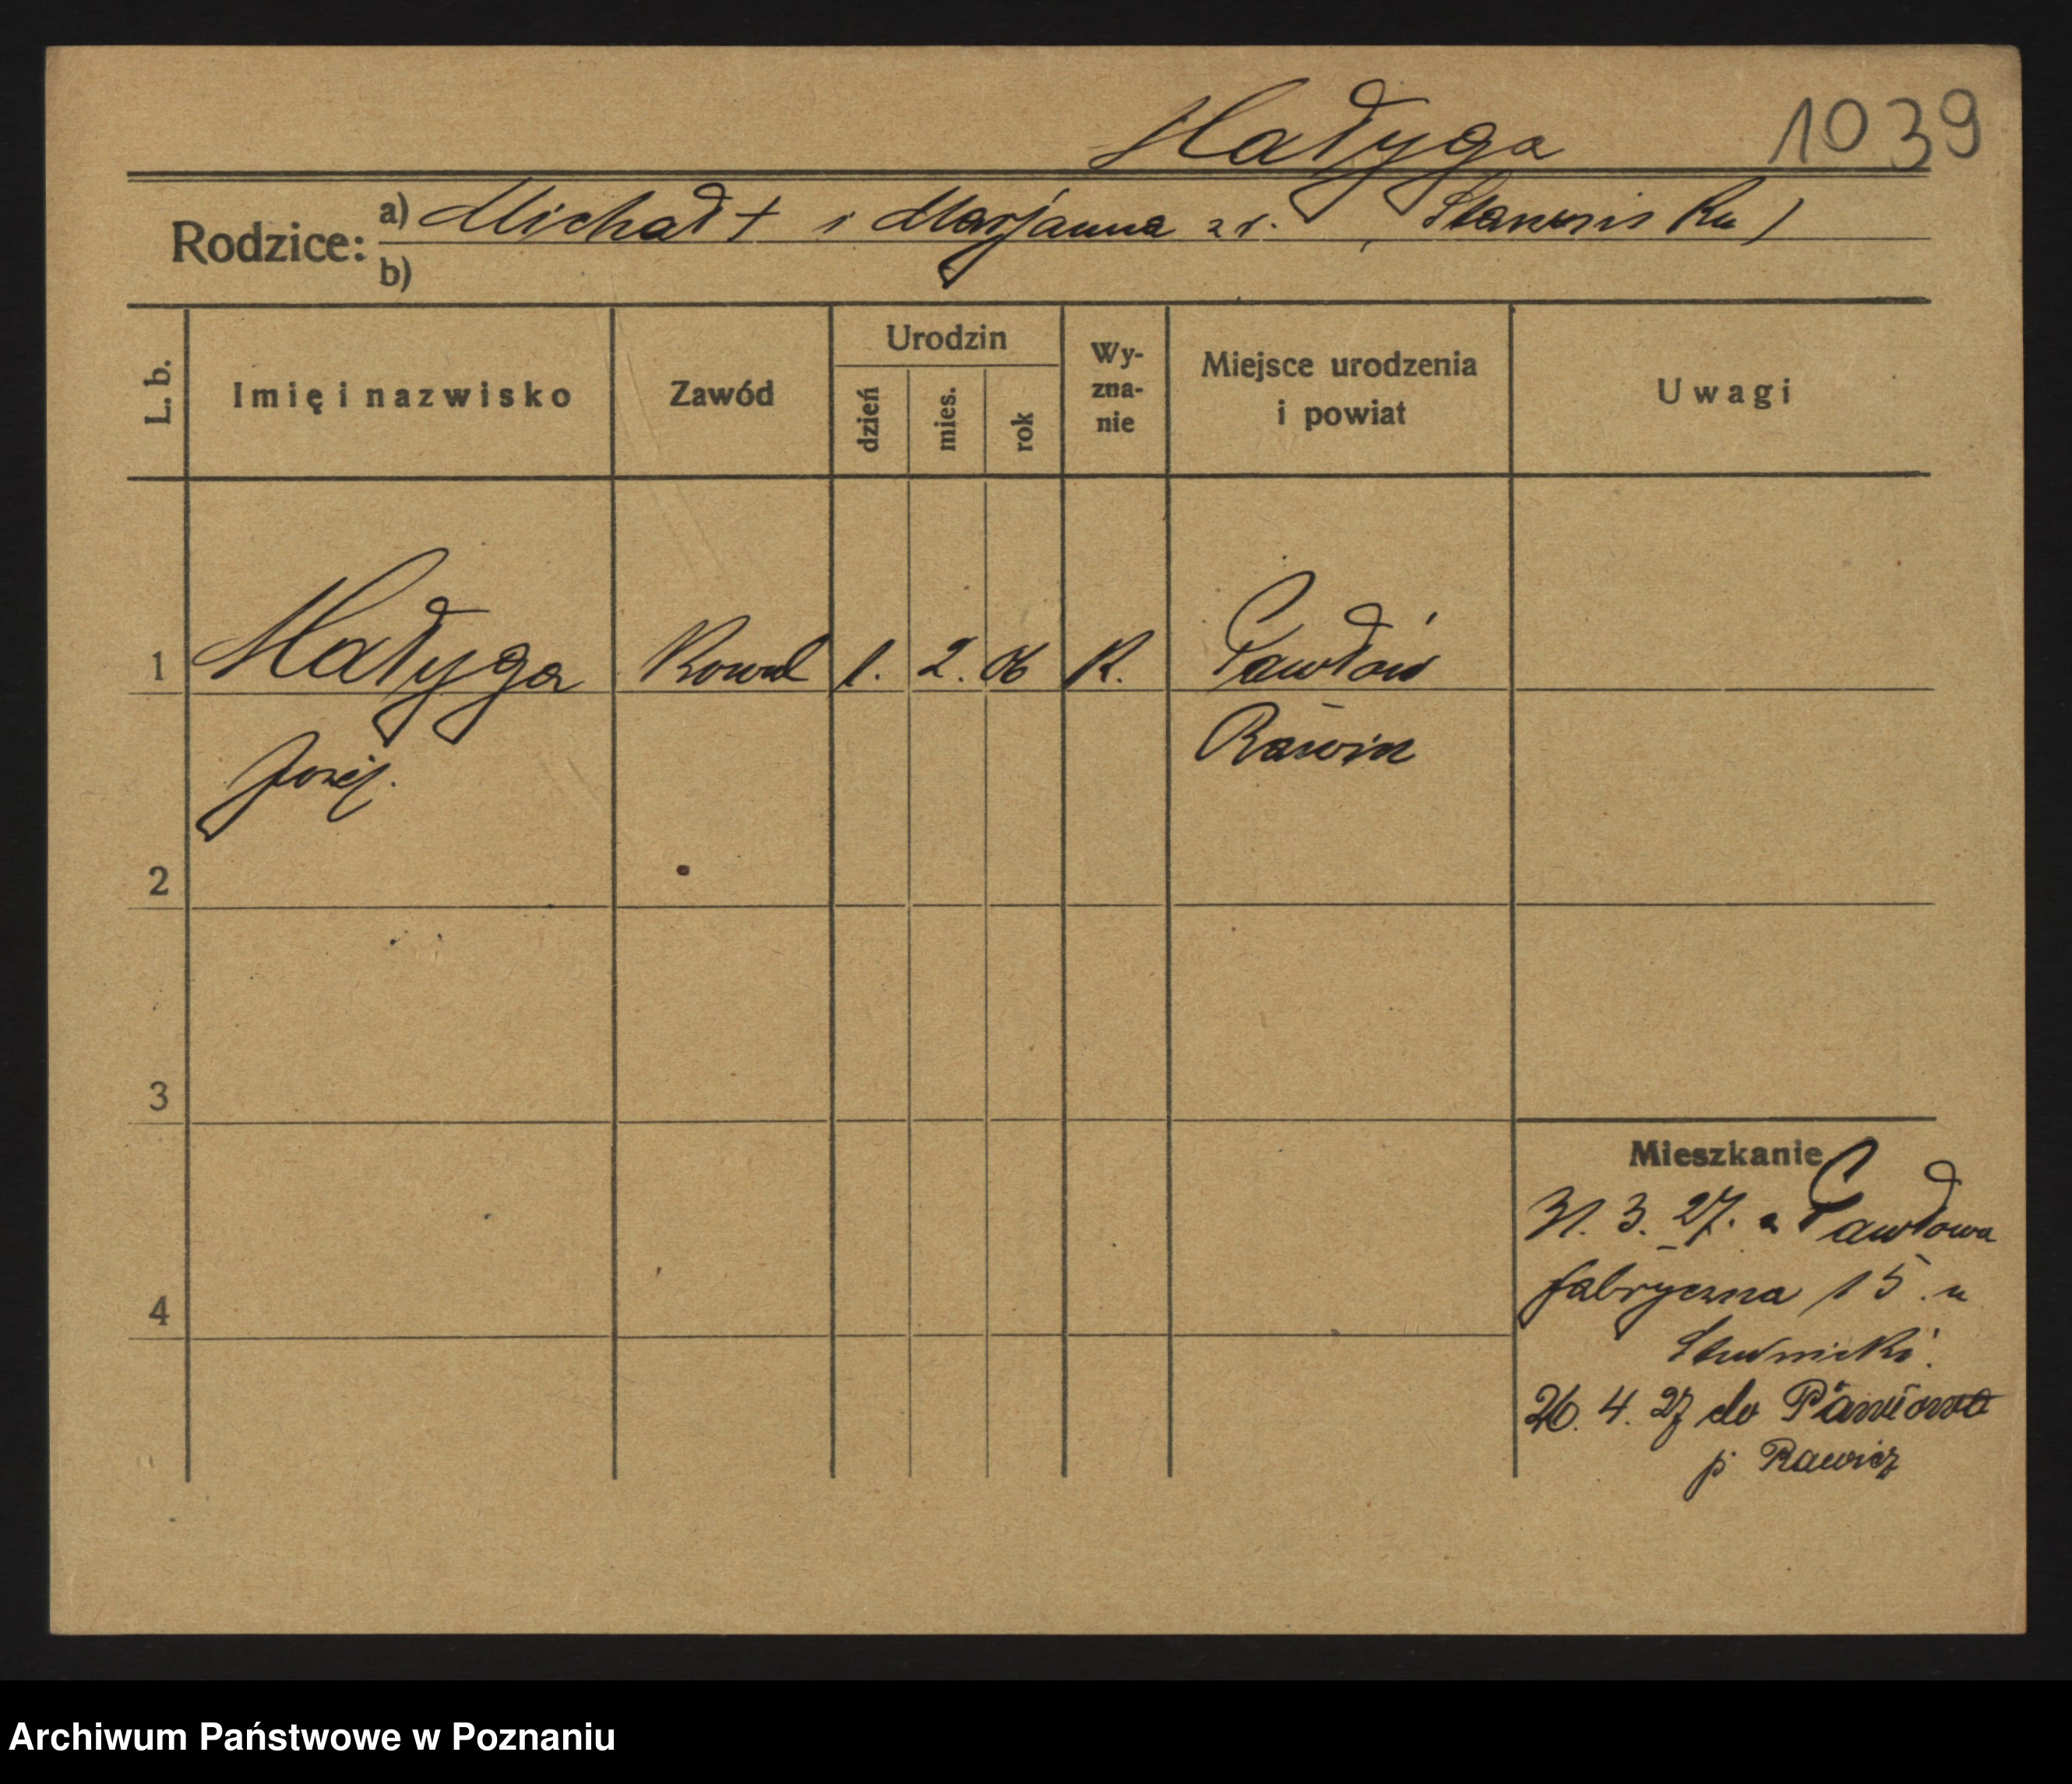 Hałyga 1039
Rodzice: a) Michał † i Marjanna zd.
b)
L. b. Imię i nazwisko Zawód Urodzin dzień mies. rok Wy-zna-nie Miejsce urodzenia i powiat Uwagi
1 Hałyga Kowal 1. 2. 06 K. Pawłów
Józef. Rawicz
2
3
4
Mieszkanie
31. 3. 27. z Pawłowa
fabryczna 15. u
Studnicki.
26. 4. 27 do Pawłowa
p. Rawicz
Archiwum Państwowe w Poznaniu